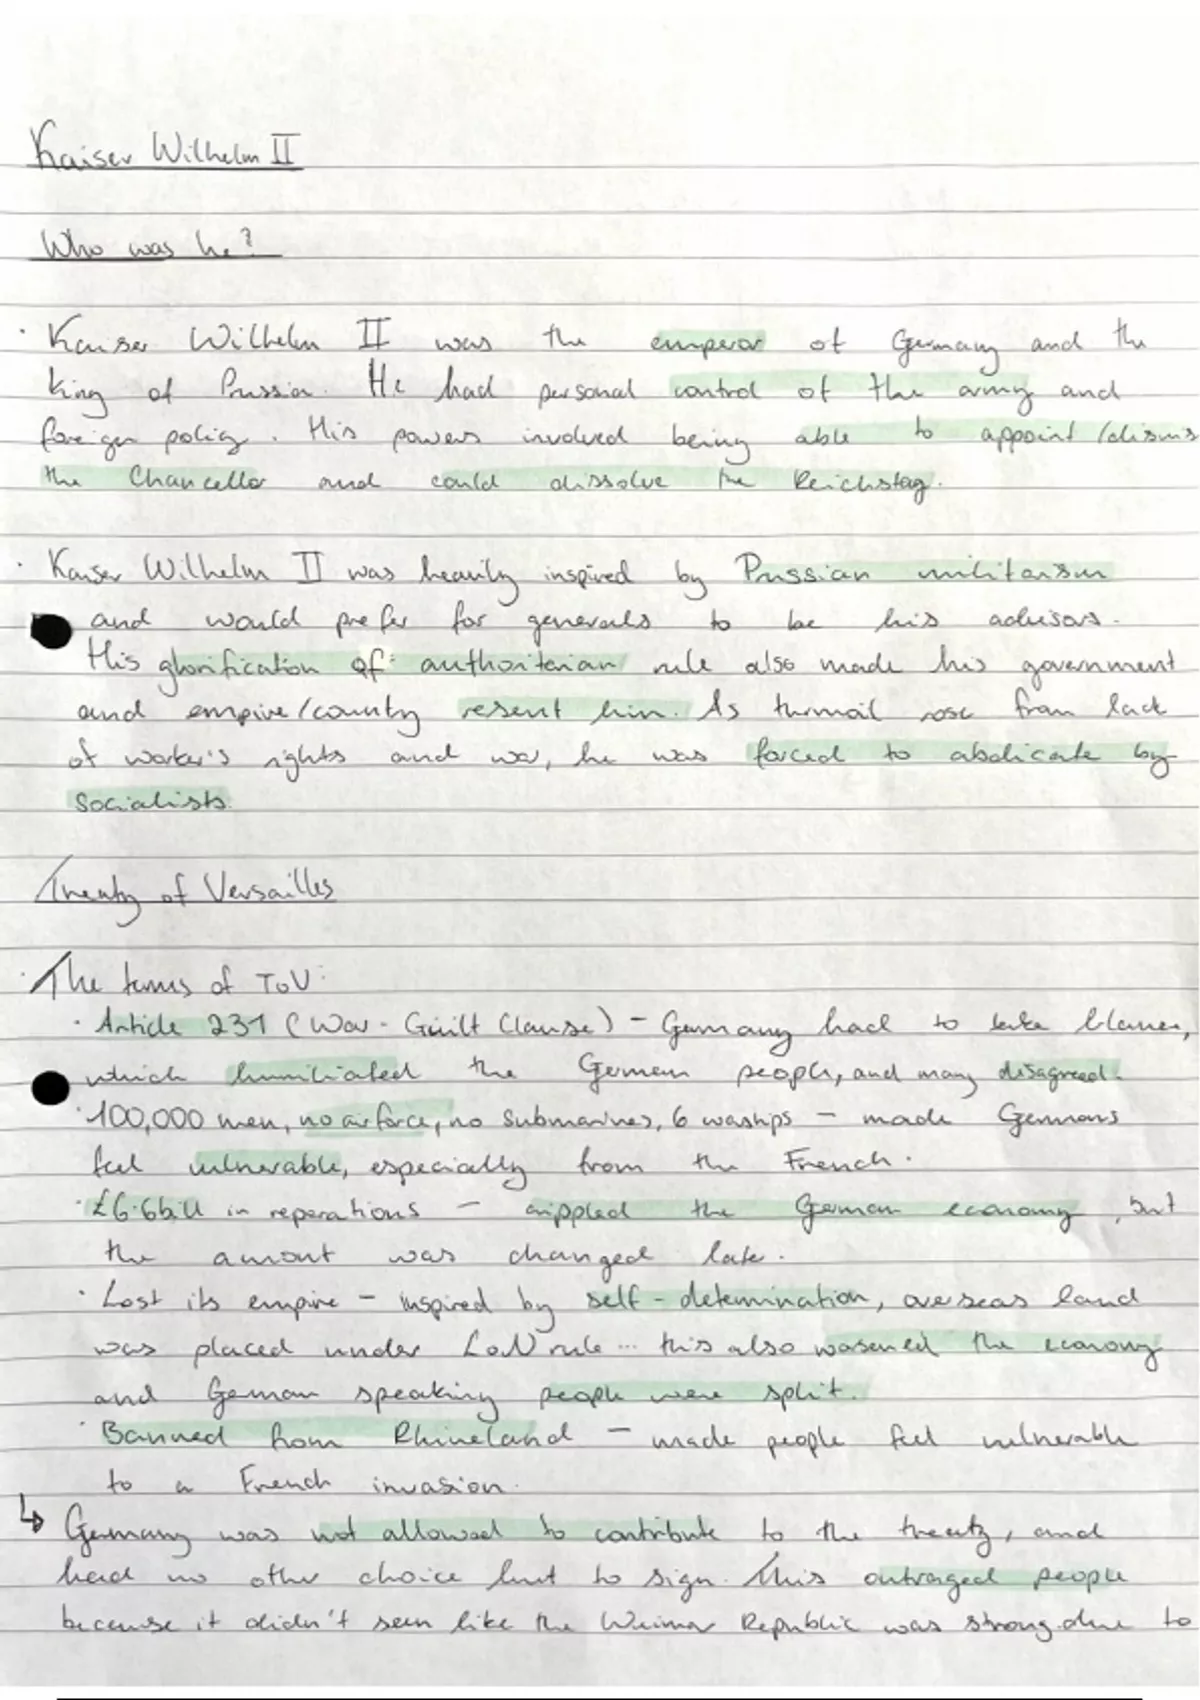 Kaiser Wilhelm II
Who was he?
· Kaiser Wilhelm II was the emperor of Germany and the
King of Prussia. He had personal control of the army and
foreign policy. His powers involved being able to appoint/dismis
the Chancellor and could dissolve the Reichstag.
· Kaiser Wilhelm II was heavily inspired by Prussian militarism
and would prefer for generals to be his advisors.
His glorification of authoritarian rule also made his government
and empire/country resent him. As turmoil rose from lack
of worker's rights and war, he was forced to abdicate by
socialists.
Treaty of Versailles
· The terms of ToV:
· Article 231 (War-Guilt Clause) - Germany had to take blame,
which humiliated the German people, and many disagreed.
· 100,000 men, no airforce, no submarines, 6 waships - made Germans
feel vulnerable, especially from the French.
· £6.6bill in reperations - crippled the German economy, but
the amont was changed late.
· Lost its empire - inspired by self-determination, overseas land
was placed under LoN rule ... this also wosened the economy
and German speaking people were split.
· Banned from Rhineland - made people feel vulnerable
to a French invasion.
↳ Germany was not allowed to contribute to the treaty, and
had no other choice but to sign. This outraged people
because it didn't seem like the Weimar Republic was strong due to